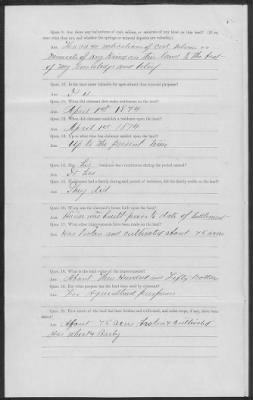 Ques. 9. Are there any indications of coal, salines, or minerals of any kind on this land? (If so,
state what they are, and whether the springs or mineral deposits are valuable.)
Ans. There are no indications of coal, salines or
Minerals of any kind on this land to the best
of my knowledge and belief
Ques. 10. Is the land more valuable for agricultural than mineral purposes?
Ans. It is
Ques. 11. When did claimant first make settlement on the land?
Ans. April 1st 1874
Ques. 12. When did claimant establish a residence upon the land?
Ans. April 1st 1874
Ques. 13. Up to what time has claimant resided upon the land?
Ans. Up to the present time
Ques. 14. Has his residence been continuous during the period named?
Ans. It has
Ques. 15. If claimant had a family during said period of residence, did the family reside on the land?
Ans. They did
Ques. 16. When was the claimant's house built upon the land?
Ans. House was built prior to date of Settlement
Ques. 17. What other improvements have been made on the land?
Ans. Has broken and cultivated about 75 acres
Ques. 18. What is the total value of the improvements?
Ans. About Three Hundred and Fifty Dollars
Ques. 19. For what purpose has the land been used by claimant?
Ans. For Agricultural purposes
Ques. 20. How much of the land has been broken and cultivated, and what crops, if any, have been
raised?
Ans. About 75 acres broken & cultivated
Has wheat & Barley